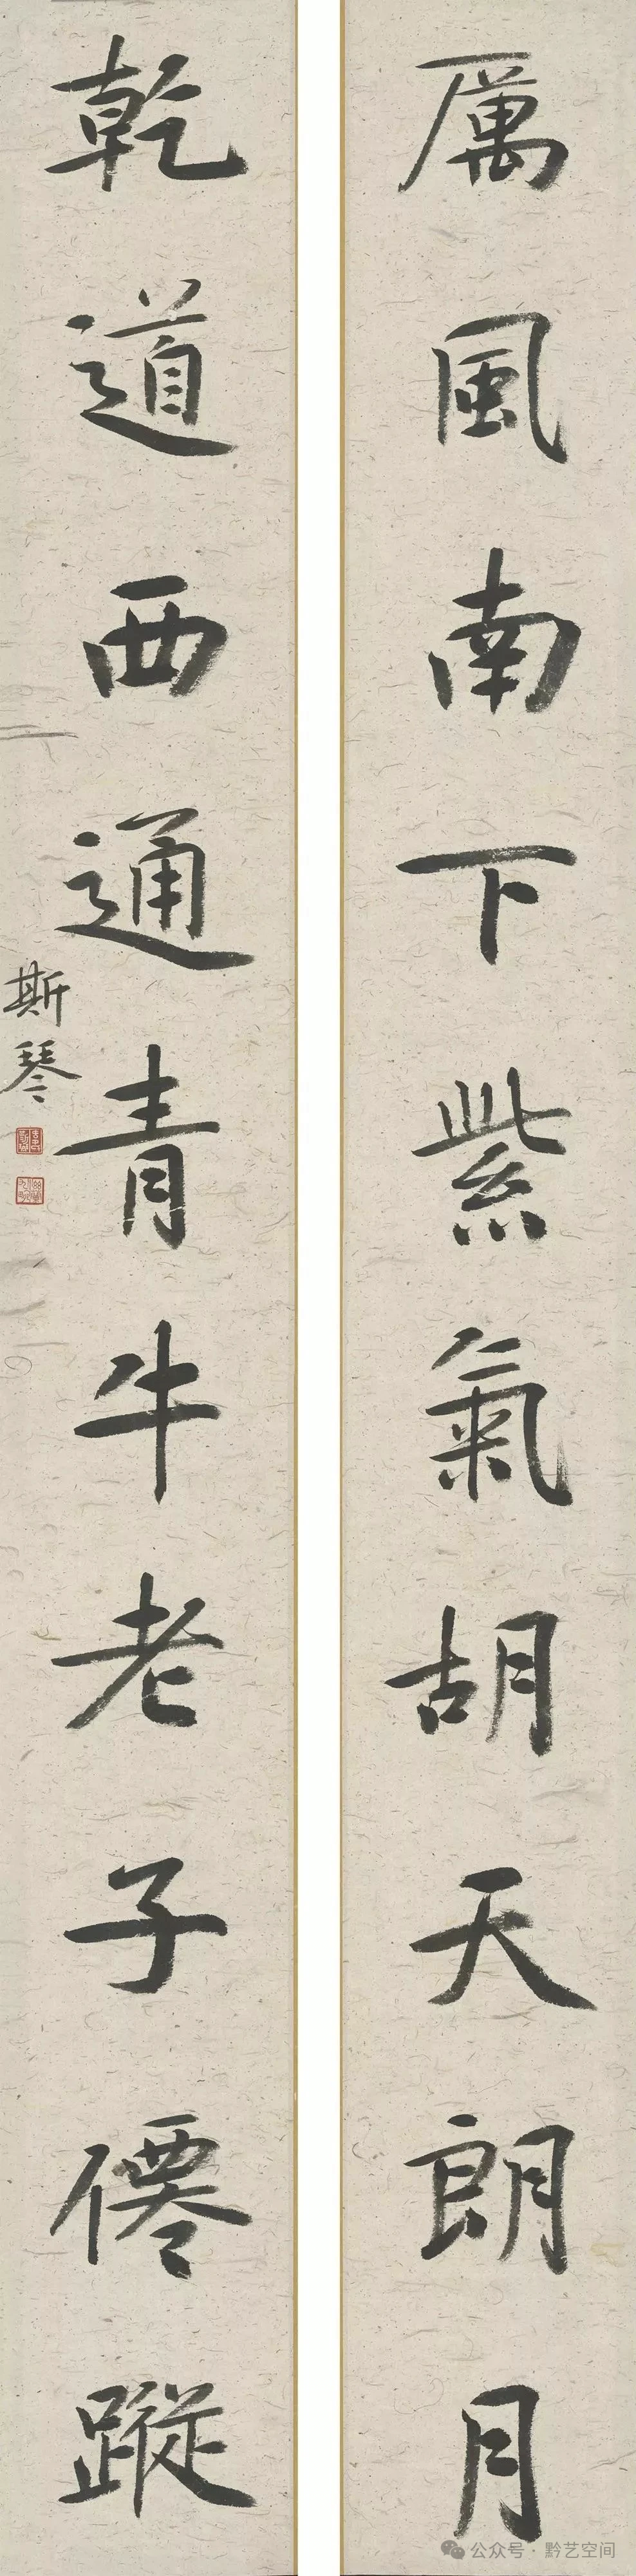 厲風南下紫氣胡天朗月
乾道西通青牛老子僊蹤
斯琴
公众号·黔艺空间